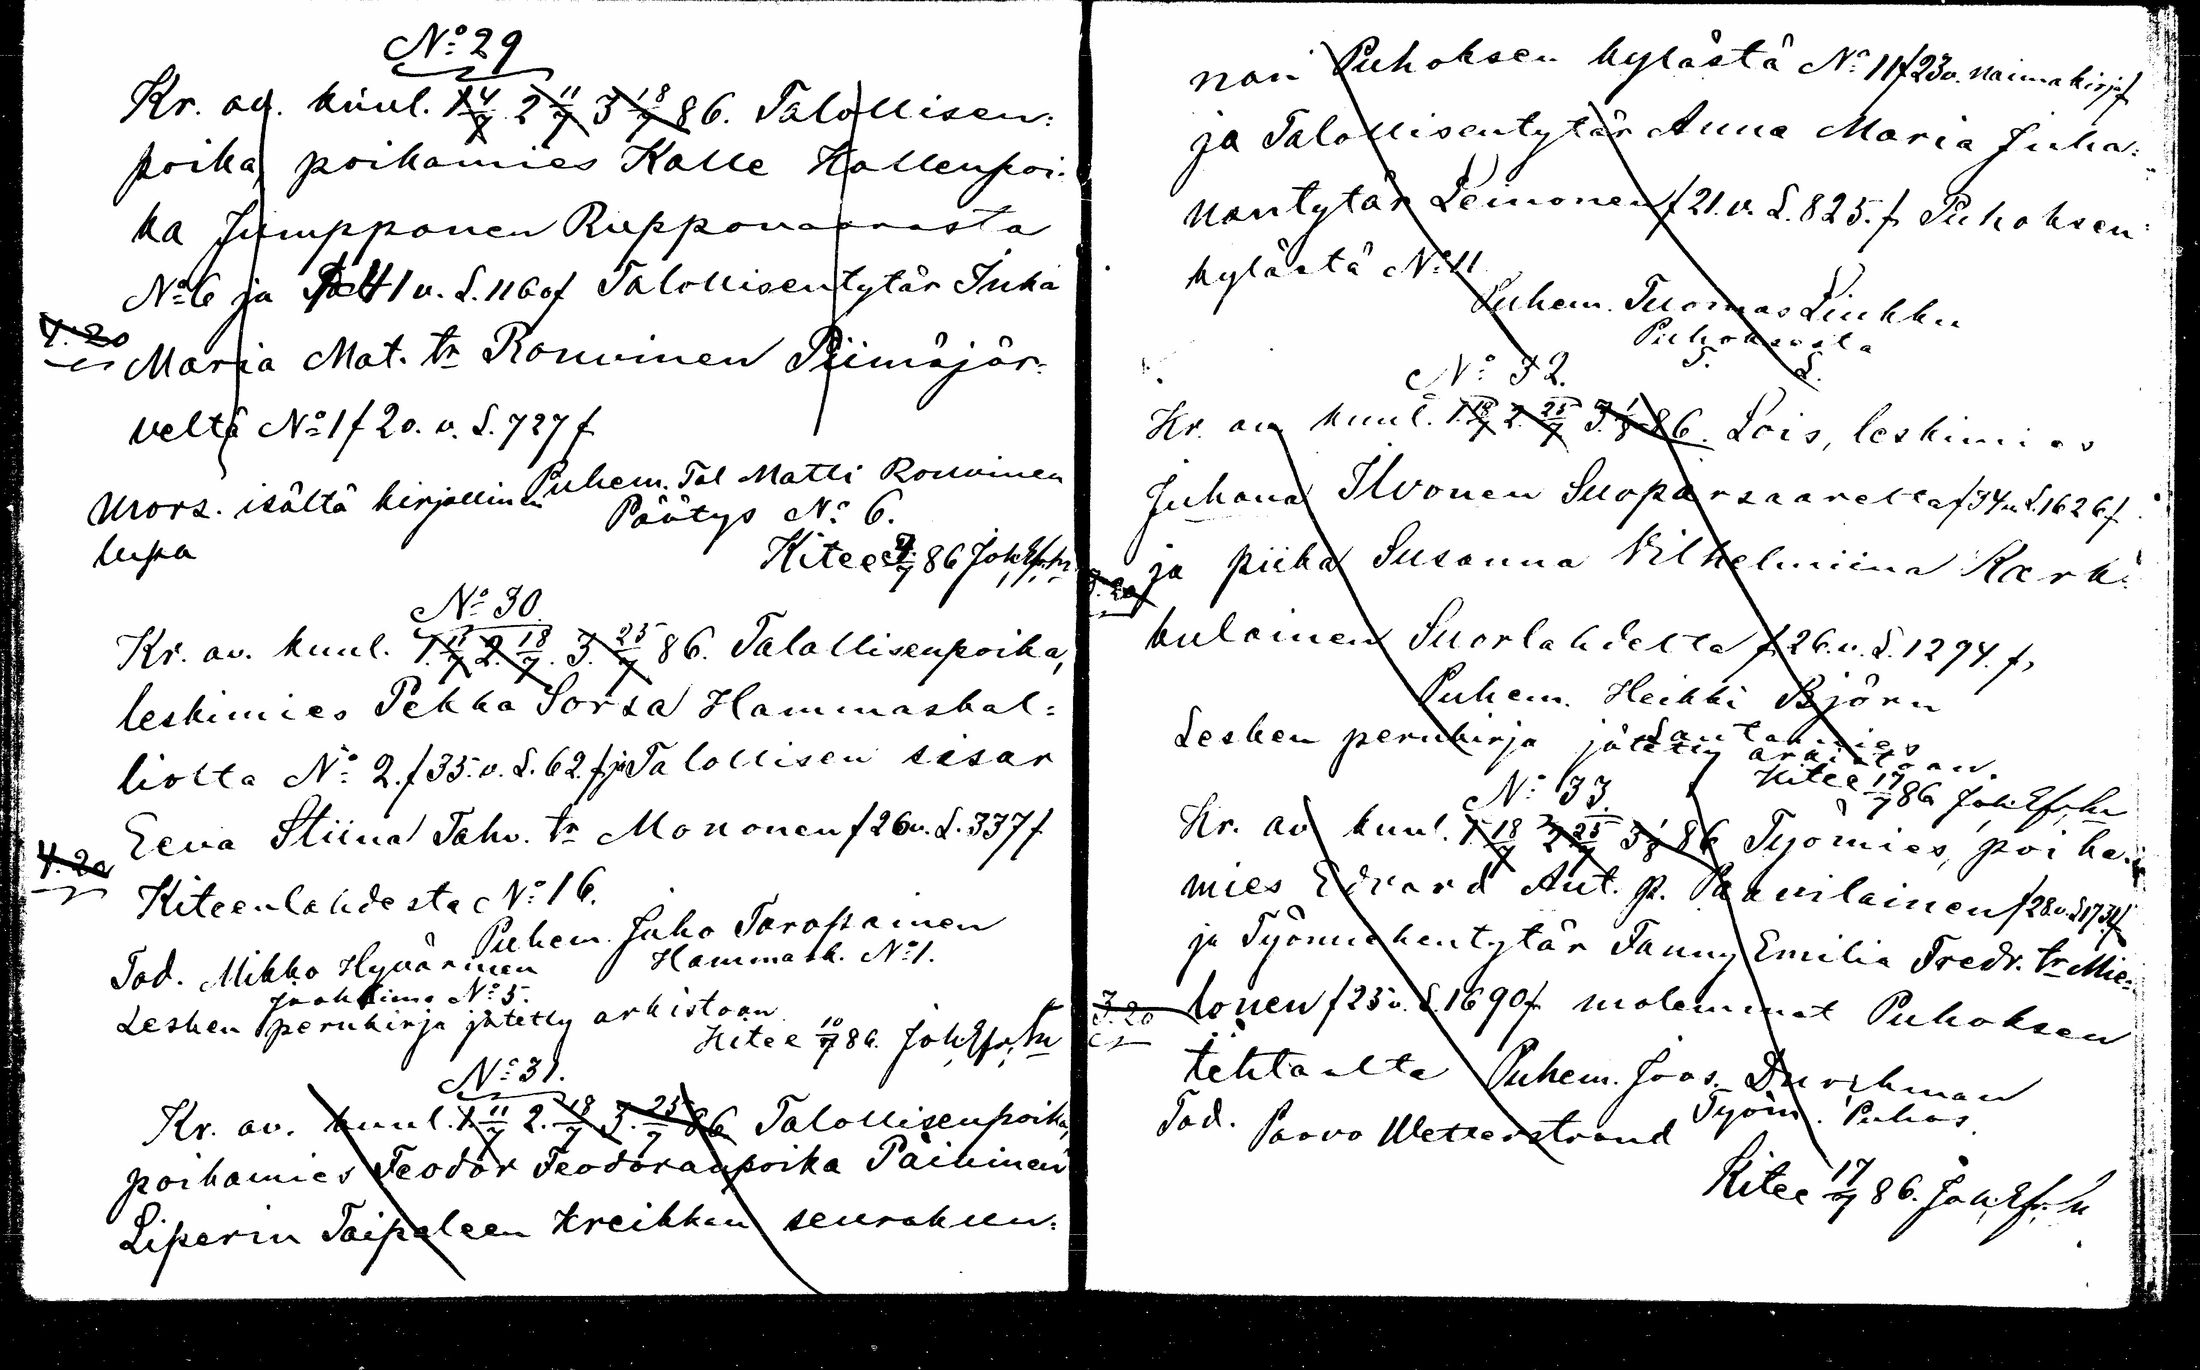 No 29
Kr. av. kuul. 1 4/7 2 11/7 3 18/7 86. Talollisen-
poika, poikamies Kalle Kallenpoi-
ka Jumpponen Ruppovaarasta
No 6 ja f 41 v. S. 1160 f Talollisentytär Inka
4.20
Maria Mat. tr Ronvinen Piimäjär-
veltä No 1 f 20. v. S. 727 f
Puhem. Tal Matti Ronvinen
Päätys No 6.
Mors. isältä kirjallinen
lupa
Kitee 86 Joh. Efr. tn
No 30.
Kr. av. kuul. 1. 11/7 2. 18/7. 3. 25/7 86. Talollisenpoika,
leskimies Pekka Sorsa Hammaskal-
liolta No 2. f 35. v. S. 62. f ja Talollisen sisar
Eeva Stiina Tahv. tr Mononen f 26 v. S. 337 f
4.20
Kiteenlahdesta No 16.
Puhem. Juho Taropainen
Hammask. No 1.
Tod. Mikko Hyvärinen
Jaakkima No 5.
Lesken perukirja jätetty arkistoon
Kitee 10/7 86. Joh. Efr. tn
No 31.
Kr. av. kuul. 1. 11/7 2. 18/7 3. 25/7 86 Talollisenpoika,
poikamies Feodor Feodoranpoika Päivinen
Liperin Taipaleen Kreikkan seurakun-
nan Puhoksen kylästä No 11 f 23 v. naimakirja f
ja Talollisentytär Anna Maria Juha-
nantytär Leinonen f 21. v. S. 825. f Puhoksen
kylästä No 11
Puhem. Tuomas Liukku
Puhoksesta
S. L.
No 32.
Kr. av. kuul. 1. 18/7 2. 25/7 3. 1/8 86. Lois, leskimies
Juhana Ilvonen Suoparsaarelta f 34 v. S. 1626 f
ja piika Susanna Vilhelmiina Kark-
3.20
kulainen Suorlahdelta f 26. v. S. 1294. f,
Puhem. Heikki Björn
Lautamies
Lesken perukirja jätetty arkistoon.
Kitee 17/7 86 Joh. Efr. tn
No 33.
Kr. av kuul. 1 18/7 2 25/7 3 1/8 86 Työmies, poika-
mies Edvard Ant. p. Paavilainen f 28 v. S 1734 f
ja Työmiehentytär Fanny Emilia Fredr. tr Mie-
3.20
lonen f 25 v. S. 1690 f molemmat Puhoksen
tehtaalta Puhem. Joos. Durchman
Työm. Puhos.
Tod. Paavo Wetterstrand
Kitee 17/7 86. Joh. Efr. tn